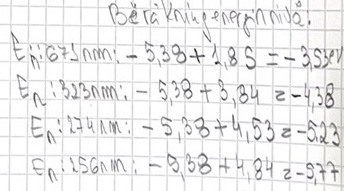 Beräkning energinivå.
En: 671nm: - 5,38 + 1,85 = - 3,53eV
En: 323nm: - 5,38 + 3,84 = - 4,38
En: 274nm: - 5,38 + 4,53 = - 5,23
En: 256nm: - 5,38 + 4,84 = - 5,77